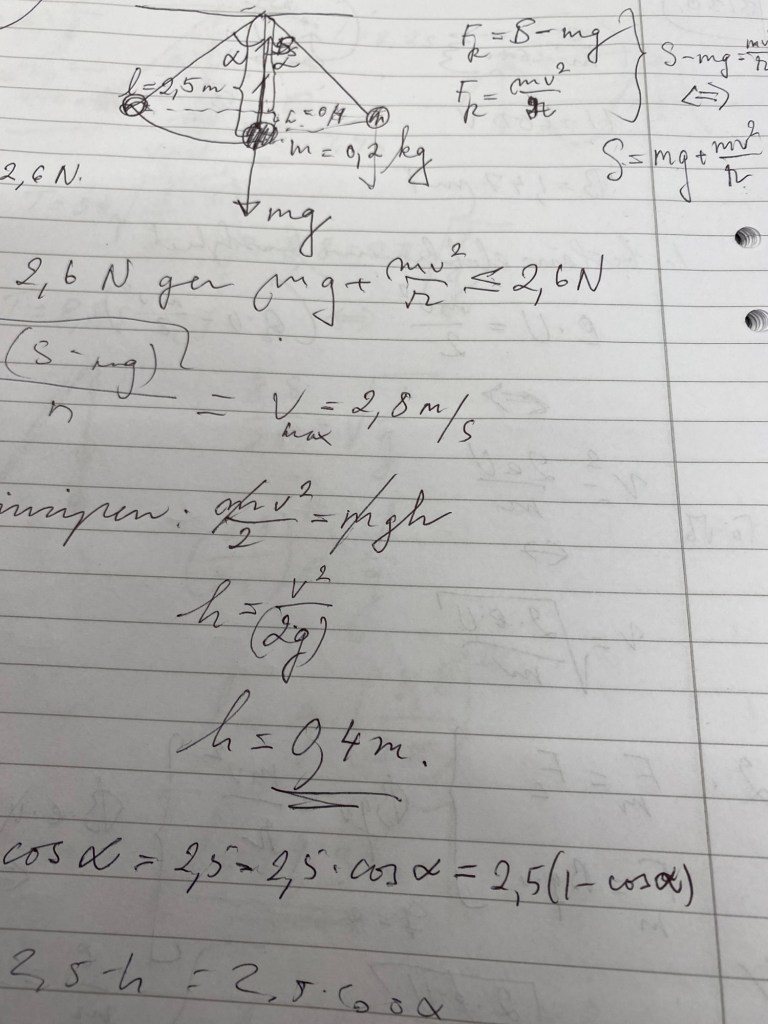 α
l = 2,5 m
h = 0,4
m = 0,2 kg
mg
F_R = S - mg
F_R = mv²/r
S - mg = mv²/r
<=>
S = mg + mv²/r
2,6 N.
2,6 N ger mg + mv²/r ≤ 2,6 N
(S - mg)
= v_max = 2,8 m/s
: mv²/2 = mgh
h = v²/(2g)
h = 0,4 m.
cos α = 2,5 - 2,5 · cos α = 2,5(1 - cos α)
2,5 - h = 2,5 · cos α